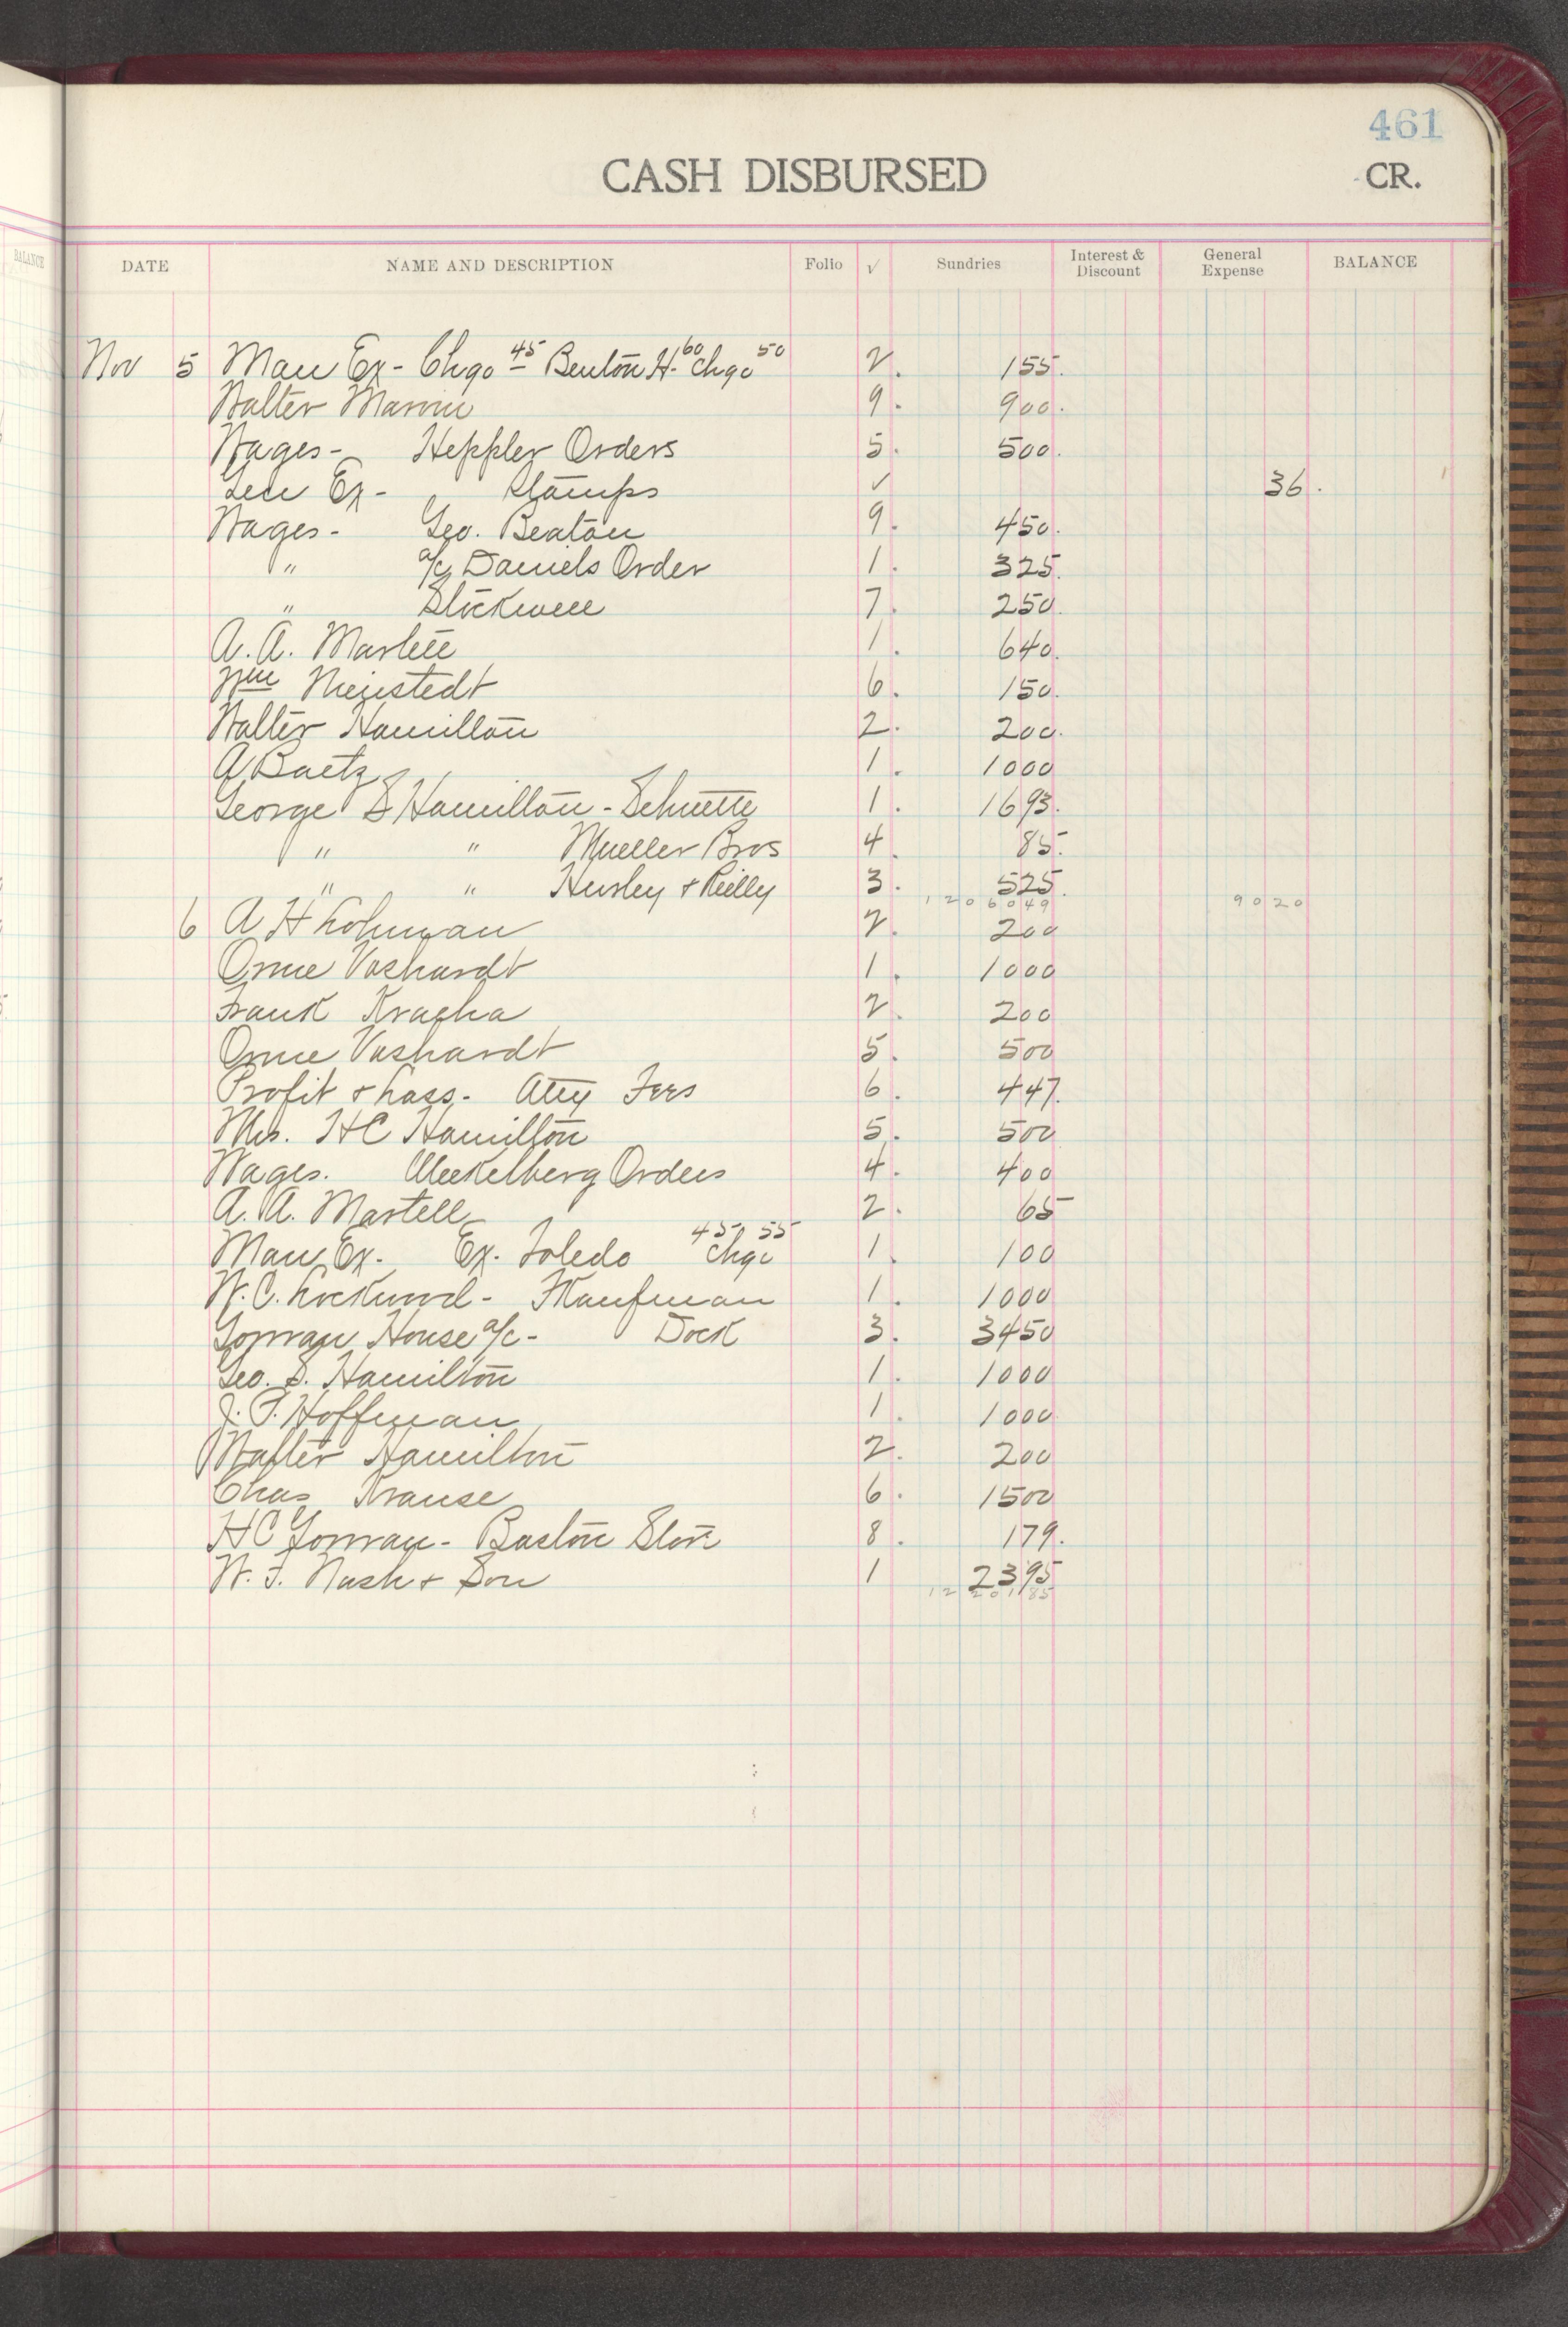 461
CASH DISBURSED
CR.
BALANCE
DATE NAME AND DESCRIPTION Folio √ Sundries Interest & Discount General Expense BALANCE
Nov 5 Man Ex - Chgo 45 Benton H. 60 Chgo 50 2. 155.
Walter 9. 900.
Wages - Heppler Orders 5. 500.
Gen Ex - Stamps ✓ 36.
Wages - Geo. Beaton 9. 450.
" a/c Daniels Order 1. 325.
" Stockwell 7. 250.
A. A. Martell 1. 640.
Wm 6. 150.
Walter Hamilton 2. 200.
A Baetz 1. 1000
George S Hamilton - Schuette 1. 1693.
" " Mueller Bros 4. 85.
" " Hursley & Reilly 3. 525.
1206049 9020
6 A H Lohman 2. 200
Orme Vashardt 1. 1000
Frank Kracha 2. 200
Orme Vashardt 5. 500
Profit & Loss - Atty Fees 6. 447.
Mrs. HC Hamilton 5. 500
Wages. Meckelberg Orders 4. 400
A. A. Martell 2. 65
Man Ex. Ex. Toledo 45 Chgo 55 1. 100
W. C. Lockwood - F Kaufman 1. 1000
Gonran House a/c - Dock 3. 3450
Geo. S. Hamilton 1. 1000
J. P. Hoffman 1. 1000
Walter Hamilton 2. 200
Chas Krause 6. 1500
HC Gonran - Baston Store 8. 179.
W. F. Nash & Son 1 2395
1220185